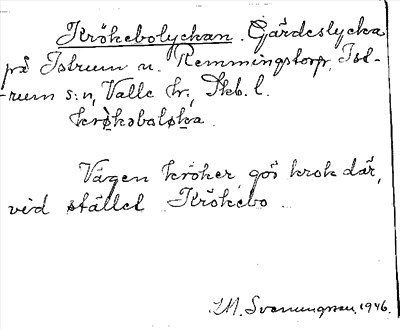 Krökebolyckan. Gärdeslycka
på Istrum u. Remmingstorp, Ist-
rum s:n, Valle hr., Skb. l.
krøkəboløka.
Vägen kröker, gör krok där,
vid stället Krökebo
M. Svenungsson, 1946.